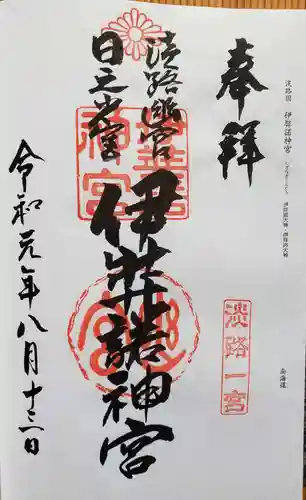 淡路国 伊弉諾神宮
奉拝
淡路一宮
南海道
淡路幽宮
日之少宮
伊弉諾神宮
令和元年八月十三日